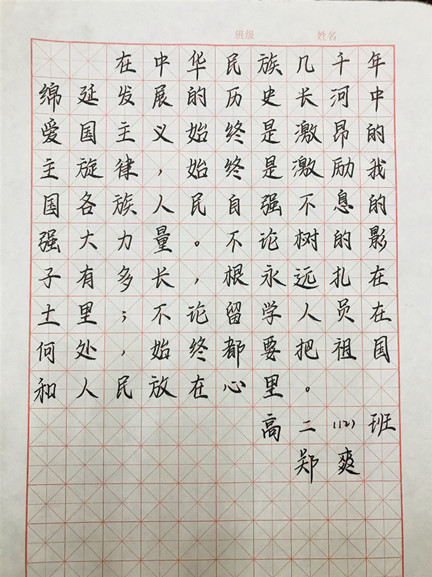 班级 姓名
在中华民族几千年
绵延发展的历史长河中
爱国主义始终是激昂的
主旋律，始终是激励我
国各族人民自强不息的
强大力量。不论树的影
子有多长，根永远扎在
土里；不论留学人员在
何处，始终都要把祖国
和人民放在心里。
高二(12)班
郑爽